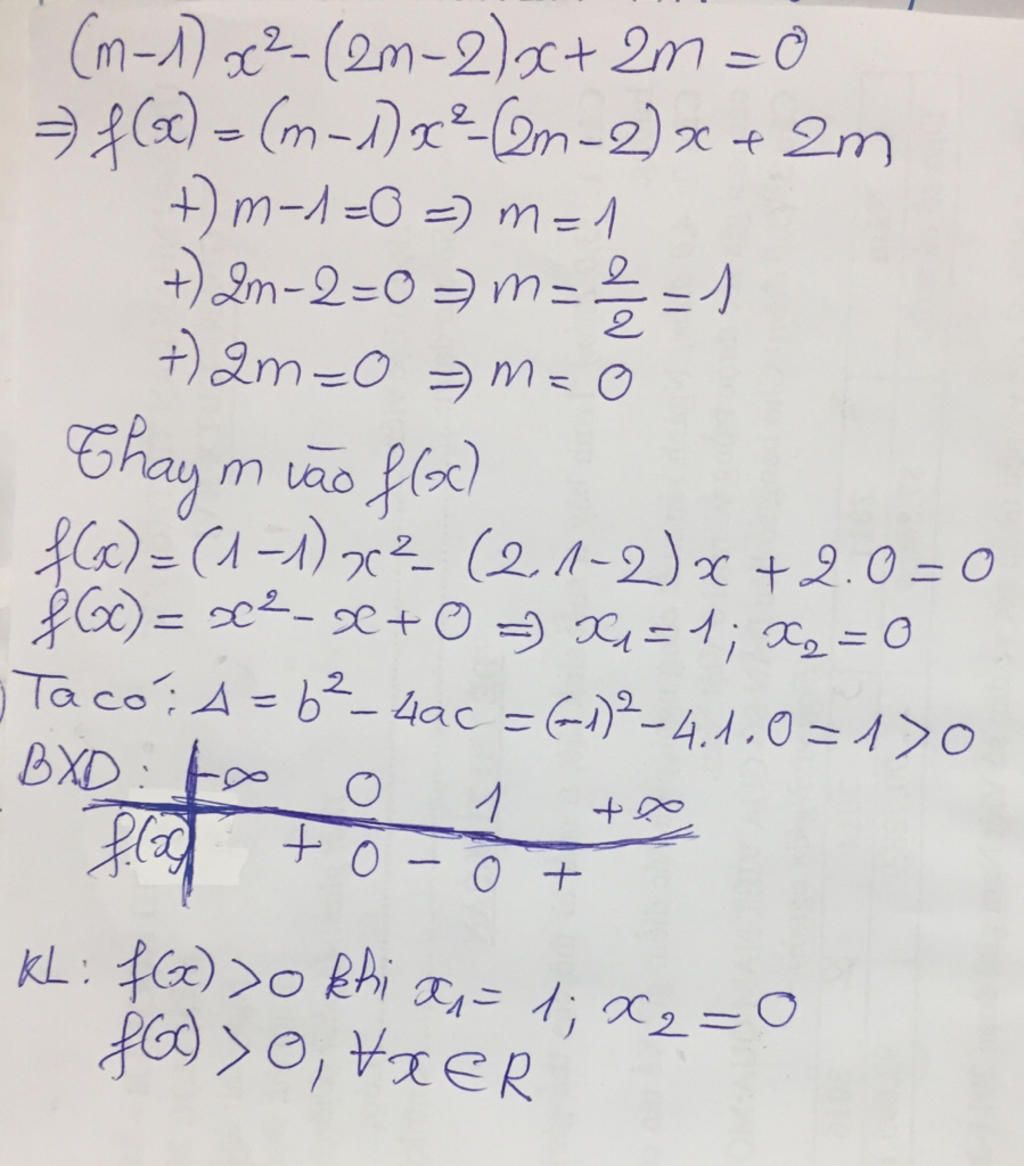 (m-1) x² - (2m-2)x + 2m = 0
⇒ f(x) = (m-1)x² - (2m-2) x + 2m
+) m-1=0 ⇒ m = 1
+) 2m-2=0 ⇒ m = 2/2 = 1
+) 2m=0 ⇒ m = 0
Thay m vào f(x)
f(x) = (1-1) x² - (2.1-2) x + 2.0 = 0
f(x) = x² - x + 0 ⇒ x₁ = 1; x₂ = 0
Ta có: Δ = b² - 4ac = (-1)² - 4.1.0 = 1 > 0
BXD: -∞ 0 1 +∞
f(x) + 0 - 0 +
KL: f(x) > 0 khi x₁ = 1; x₂ = 0
f(x) > 0, ∀x ∈ R